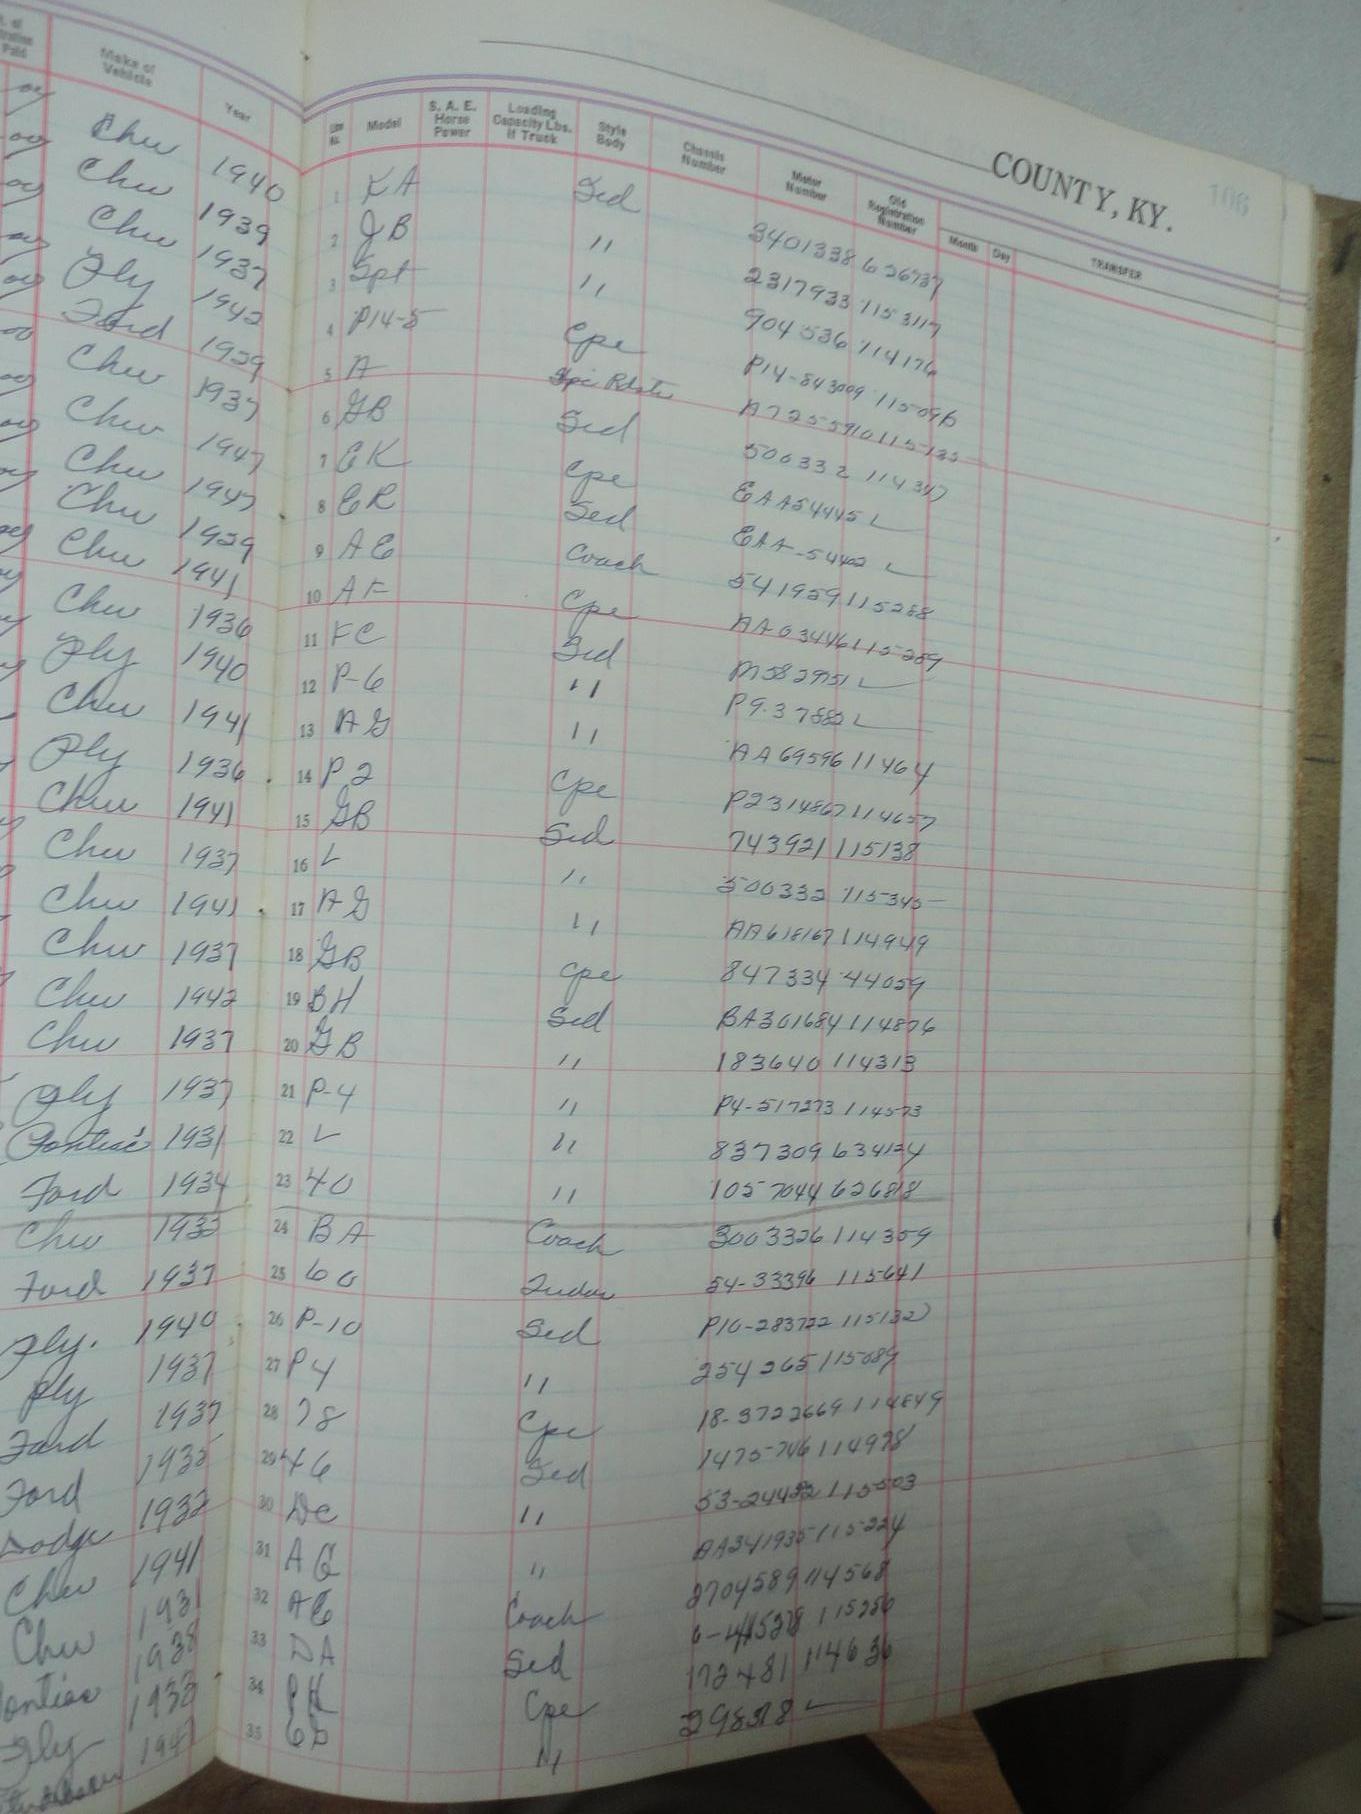 COUNTY, KY.
106
Make of Vehicle Year Line No. Model S. A. E. Horse Power Loading Capacity Lbs. if Truck Style Body Chassis Number Motor Number Old Registration Number Month Day TRANSFER
Chev 1940 1 KA Sed 3401338 626737
Chev 1939 2 JB " 2317933 1153117
Chev 1937 3 Spt " 904536 114176
Ply 1942 4 P14-5 Cpe P14-843009 115096
Ford 1929 5 A A725590 115132
Chev 1937 6 GB Sed 500332 114347
Chev 1947 7 EK Cpe EAA54445
Chev 1947 8 ER Sed EAA-54402
Chev 1929 9 AE Coach 541959 115288
Chev 1941 10 AF Cpe AA03446 115289
Chev 1936 11 FC Sed M5829751
Ply 1940 12 P-6 " P9.37882
Chev 1941 13 AG " AA69596 11464
Ply 1936 14 P2 Cpe P2314867 114657
Chev 1941 15 GB Sed 743921 115138
Chev 1937 16 L " 500332 115345
Chev 1941 17 AG " AA618167 114949
Chev 1937 18 GB Cpe 847334 44059
Chev 1942 19 BH Sed BA301684 114876
Chev 1937 20 GB " 183640 114313
Ply 1937 21 P-4 " P4-517273 114573
Pontiac 1931 22 L " 837309 634134
Ford 1934 23 40 " 1057044 626818
Chev 1933 24 BA Coach 3003326 114359
Ford 1937 25 60 Tudor 54-33396 115641
Ply. 1940 26 P-10 Sed P10-283722 115132
Ply 1937 27 P4 " 254265 115089
Ford 1937 28 78 Cpe 18-3722669 114849
Ford 1935 29 46 Sed 1475746 114978
Dodge 1933 30 DC " 53-24432 115503
Chev 1941 31 AG " AA241935 115224
Chev 1931 32 AE Coach 2704589 114568
Pontiac 1938 33 DA Sed 115250
Ply 1933 34 PK Cpe 172481 114636
194 35 " 298318